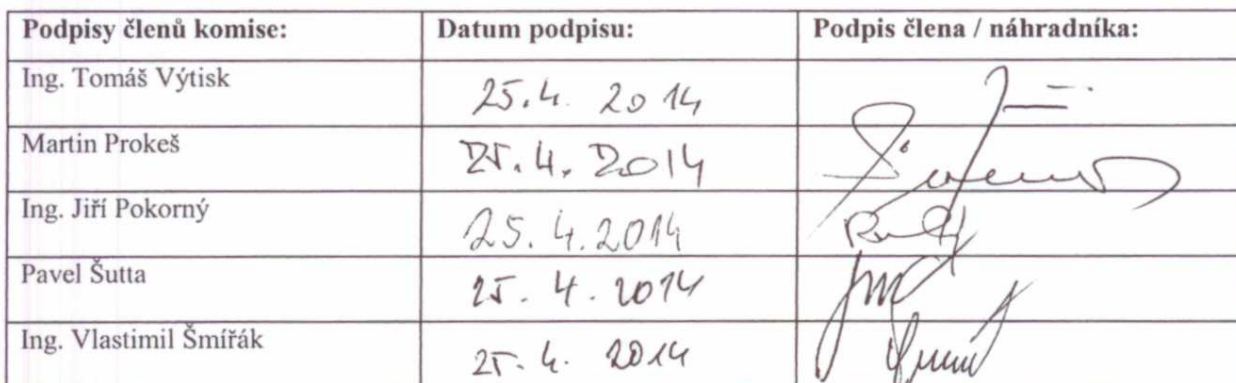 Podpisy členů komise: Datum podpisu: Podpis člena / náhradníka:
Ing. Tomáš Výtisk 25.4. 2014
Martin Prokeš 25.4. 2014
Ing. Jiří Pokorný 25. 4. 2014
Pavel Šutta 25. 4. 2014
Ing. Vlastimil Šmířák 25. 4. 2014